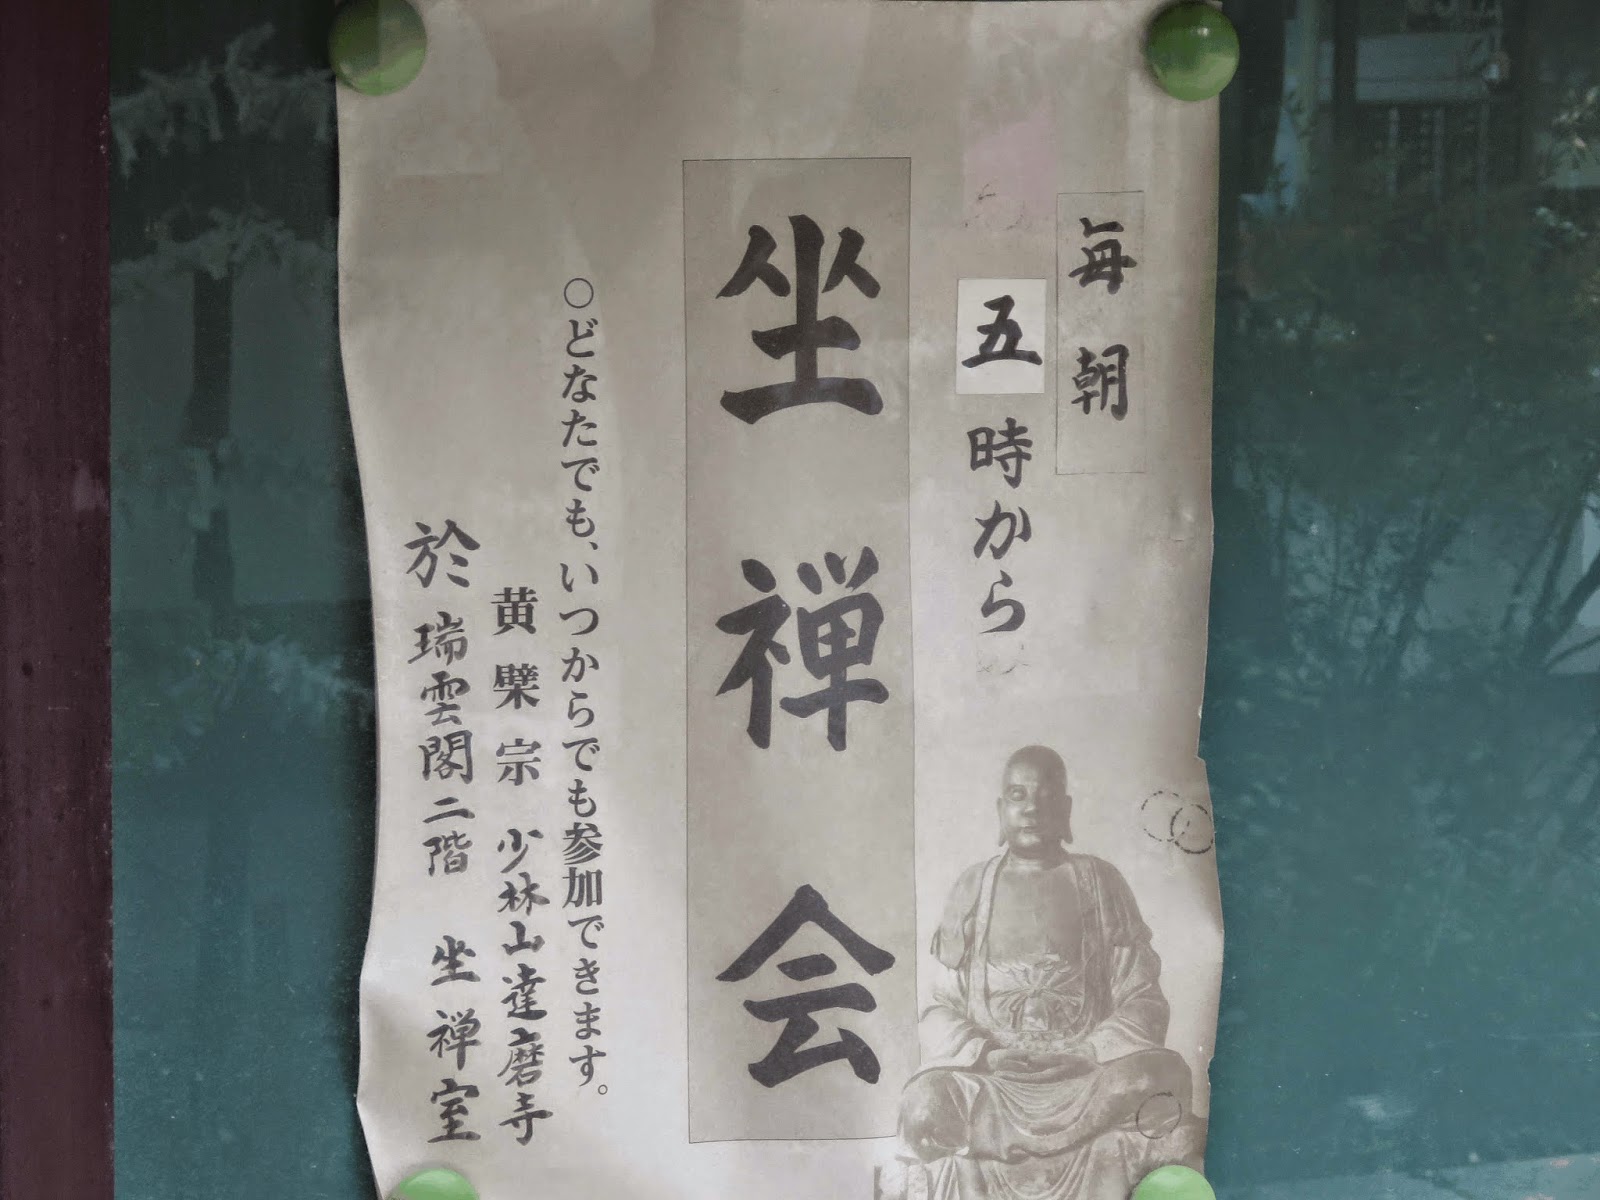 毎朝
五時から
坐禅会
○どなたでも、いつからでも参加できます。
黄檗宗 少林山達磨寺
於 瑞雲閣二階 坐禅室